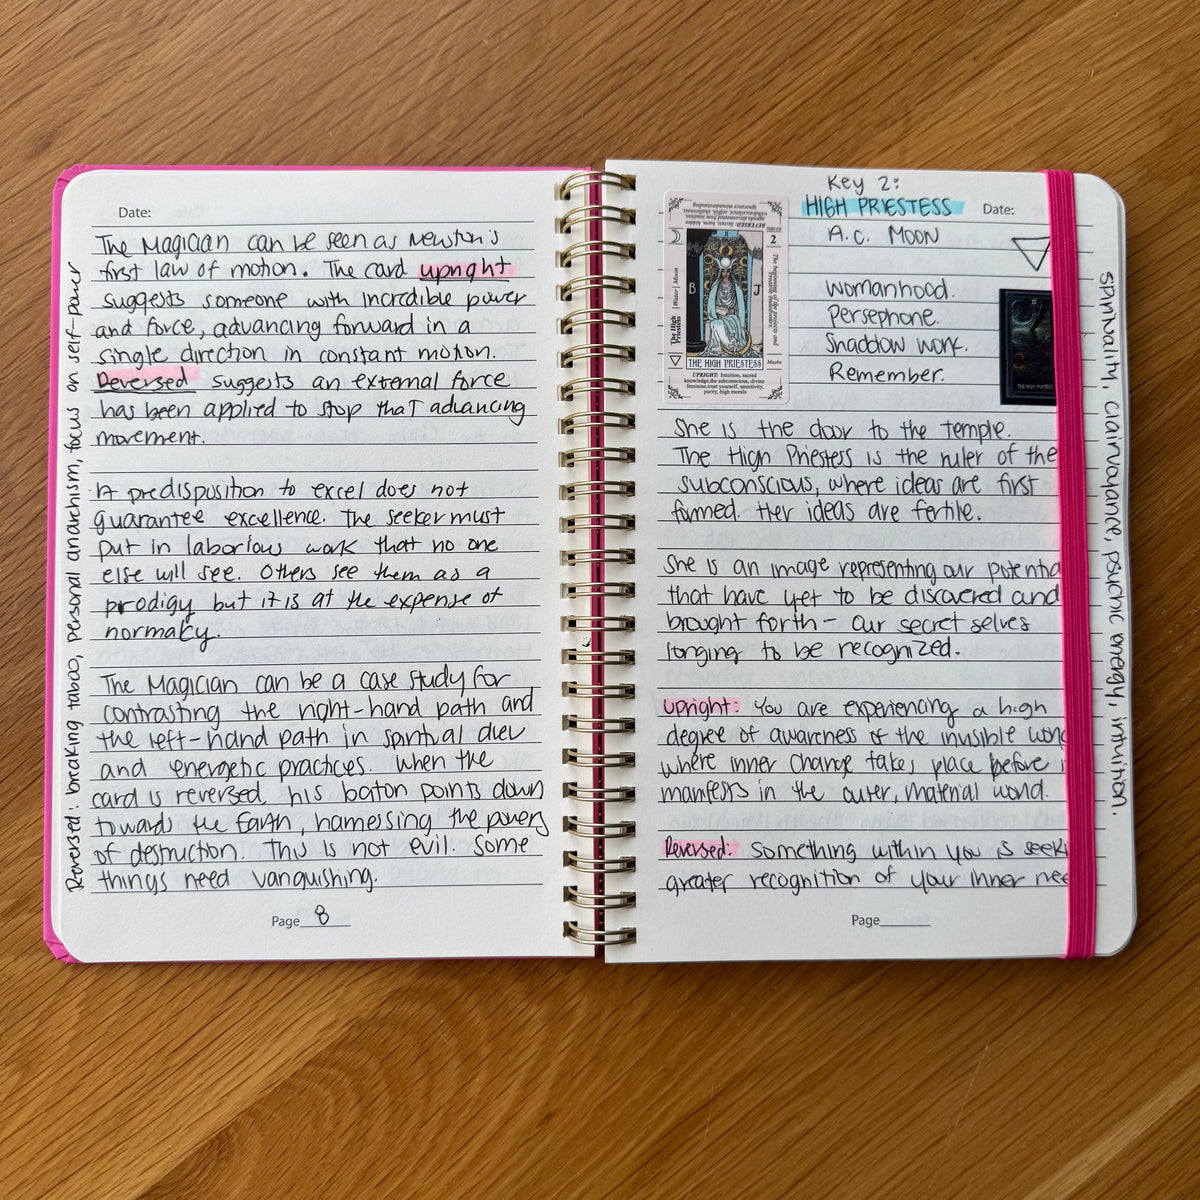 Date:
The Magician can be seen as Newton's
first law of motion. The card upright
suggests someone with incredible power
and force, advancing forward in a
single direction in constant motion.
Reversed suggests an external force
has been applied to stop that advancing
movement.
A predisposition to excel does not
guarantee excellence. The seeker must
put in laborious work that no one
else will see. Others see them as a
prodigy but it is at the expense of
normalcy.
The Magician can be a case study for
contrasting the right-hand path and
the left-hand path in spiritual dev
and energetic practices. When the
card is reversed, his baton points down
towards the Earth, harnessing the powers
of destruction. This is not evil. Some
things need vanquishing.
Page 8
Reversed: breaking taboo, personal anarchism, focus on self-power
Key 2:
HIGH PRIESTESS
Date:
A.C. MOON
Womanhood.
Persephone.
Shaddow work.
Remember.
2
The High Priestess
Water
Moon
Maybe
B
J
THE HIGH PRIESTESS
UPRIGHT: Intuition, sacred
knowledge, the subconscious, divine
feminine, trust yourself, sensitivity,
purity, high morals
She is the door to the temple.
The High Priestess is the ruler of the
subconscious, where ideas are first
formed. Her ideas are fertile.
She is an image representing our potentia
that have yet to be discovered and
brought forth - our secret selves
longing to be recognized.
Upright: You are experiencing a high
degree of awareness of the invisible
where inner change takes place before
manifests in the outer, material world.
Reversed: Something within you is seeki
greater recognition of your inner nee
Page
spirituality, clairvoyance, psychic energy, intuition.